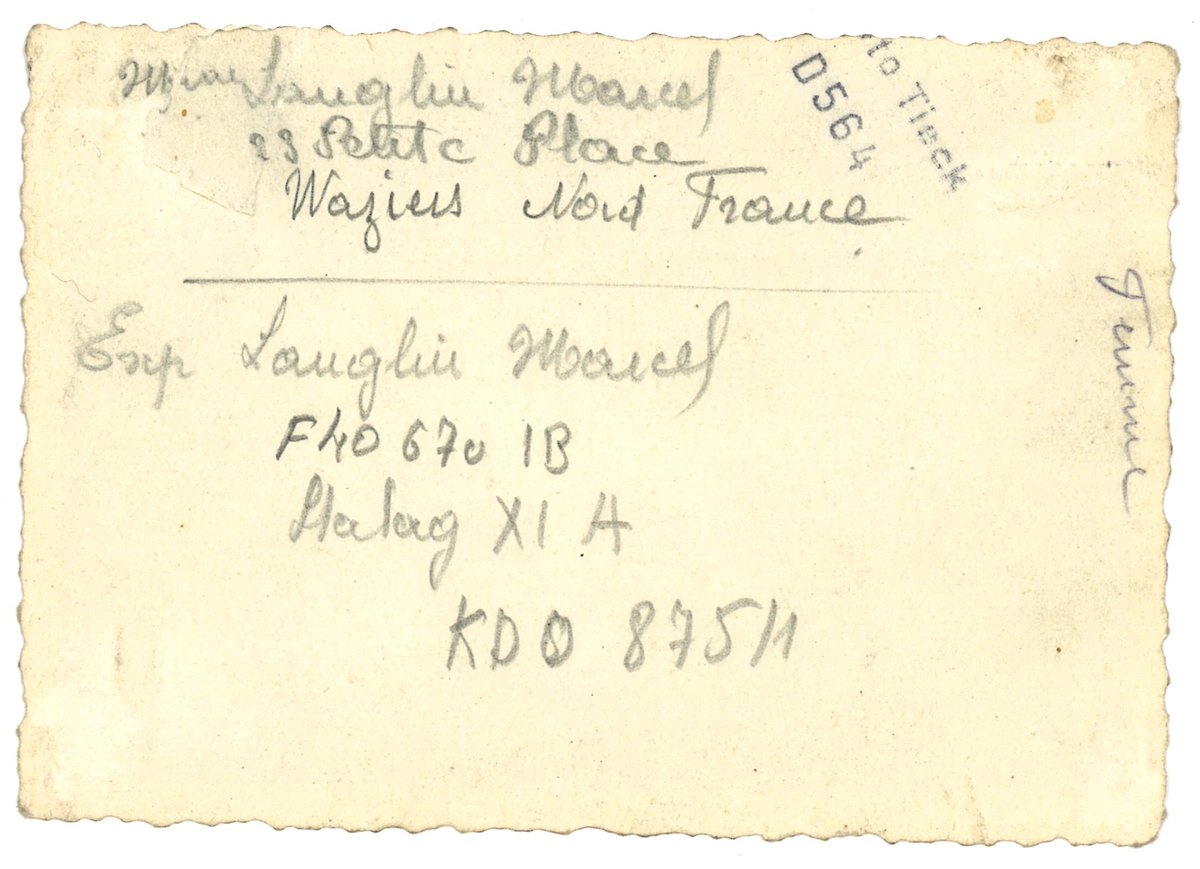 Langlin Marcel
23 Petite Place
Waziers Nord France
to Tieck
D564
Exp Langlin Marcel
F40 670 IB
Stalag XI A
KDO 875/1